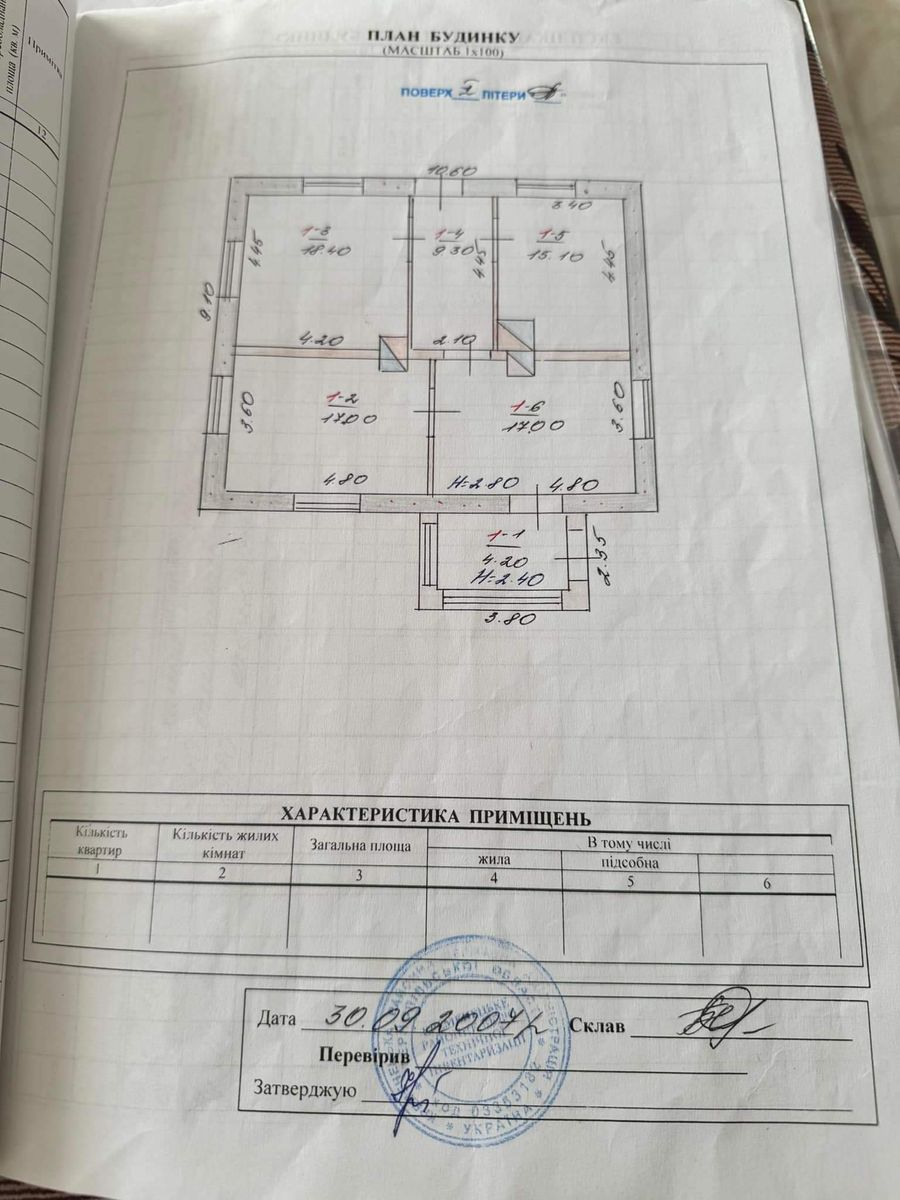 площа (кв. м)
12
ПЛАН БУДИНКУ
(МАСШТАБ 1х100)
ПОВЕРХ I ЛІТЕРИ
10.60
3.40
1-3
18.40
1-4
9.30
1-5
15.10
4.45
4.45
4.45
9.10
4.20
2.10
3.60
1-2
17.00
1-6
17.00
3.60
4.80
H=2.80
4.80
1-1
4.20
H=2.40
2.35
3.80
ХАРАКТЕРИСТИКА ПРИМІЩЕНЬ
Кількість квартир
Кількість жилих кімнат
Загальна площа
В тому числі
жила
підсобна
1 2 3 4 5 6
Дата 30.09.2004р Склав
Перевірив
Затверджую
ТЕХНІЧНОЇ
ІНВЕНТАРИЗАЦІЇ
КОД 03353182
* УКРАЇНА *